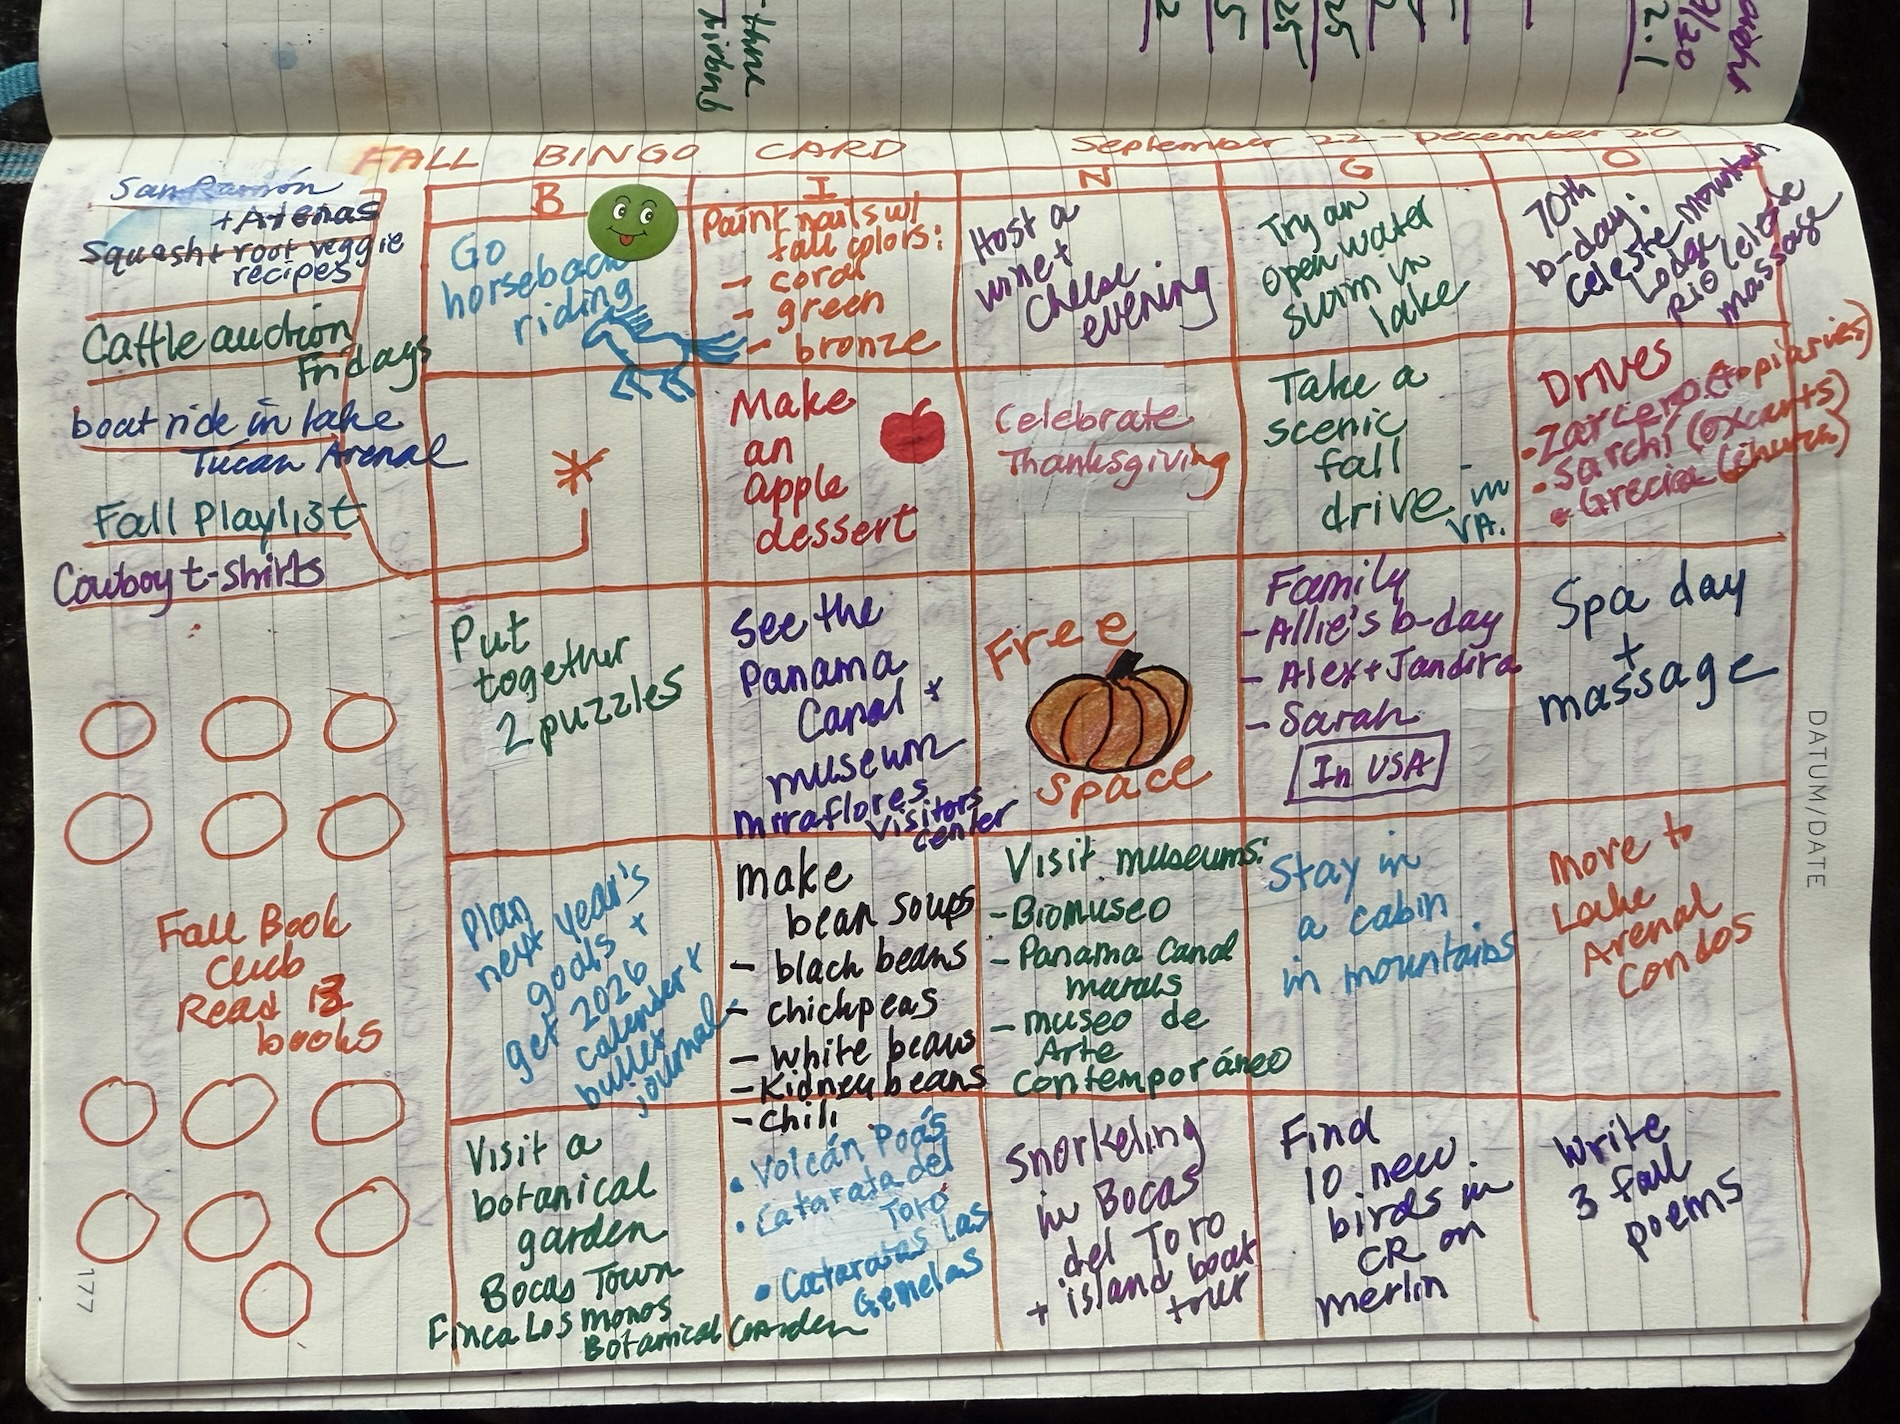 FALL BINGO CARD
September 22 - December 20
San Ramón
+ Atenas
Squash + root veggie
recipes
Cattle auction
Fridays
boat ride in lake
Tucan Arenal
Fall Playlist
Cowboy t-shirts
Fall Book
Club
Read 13
books
B
I
N
G
O
Go
horseback
riding
Paint nails w/
fall colors:
- coral
- green
- bronze
Host a
wine +
cheese
evening
Try an
open water
swim in
lake
70th
b-day:
Celeste Mountain
Lodge
Rio Celeste
massage
*
Make
an
apple
dessert
Celebrate
Thanksgiving
Take a
scenic
fall
drive - in
VA.
Drives
• Zarcero (topiaries)
• Sarchí (oxcarts)
• Grecia (church)
Put
together
2 puzzles
See the
Panama
Canal +
museum
Miraflores Visitors
center
Free
Space
Family
- Allie's b-day
- Alex + Jandira
- Sarah
In USA
Spa day
+
massage
Plan
next year's
goals +
get 2026
calender +
bullet
journal
Make
bean soups
- black beans
- chickpeas
- white beans
- Kidney beans
- chili
Visit museums:
- Biomuseo
- Panama Canal
murals
- museo de
Arte
Contemporáneo
Stay in
a cabin
in mountains
Move to
Lake
Arenal
Condos
Visit a
botanical
garden
Bocas Town
Finca Los Monos
Botanical Garden
• Volcán Poás
• Catarata del
Toro
• Cataratas Las
Gemelas
Snorkeling
in Bocas
del Toro
+ island boat
tour
Find
10 new
birds in
CR on
merlin
Write
3 fall
poems
DATUM/DATE
177